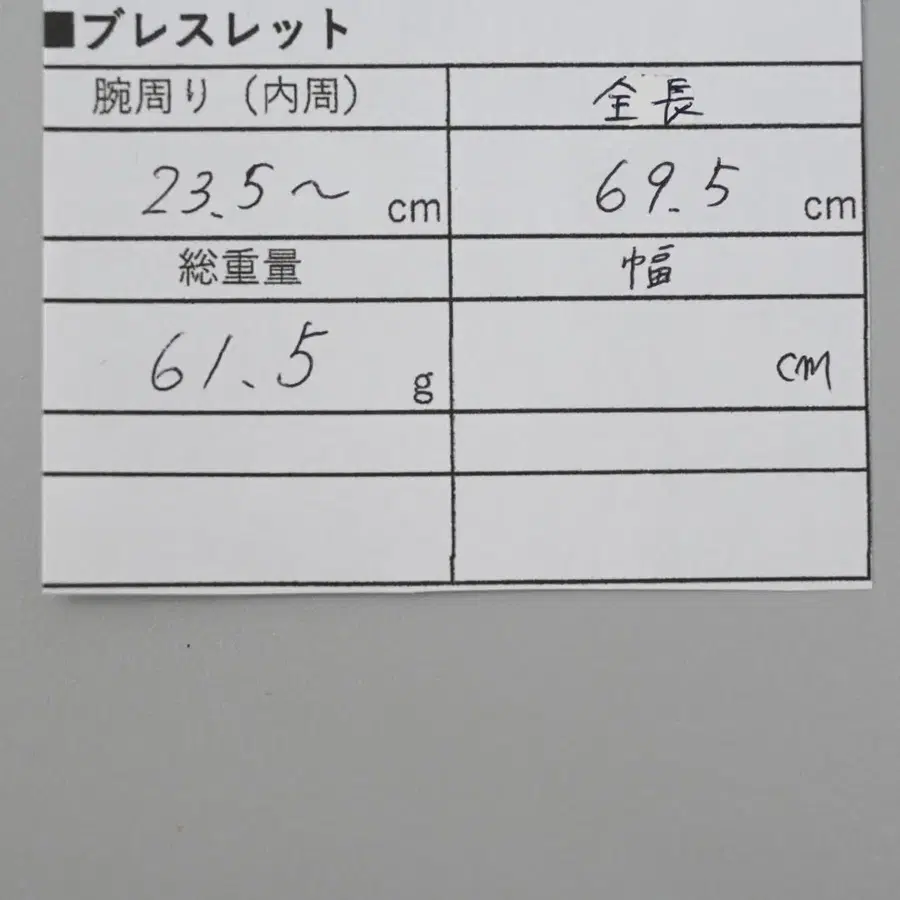 ■ブレスレット
腕周り（内周） 全長
23.5～ cm 69.5 cm
総重量 幅
61.5 g cm